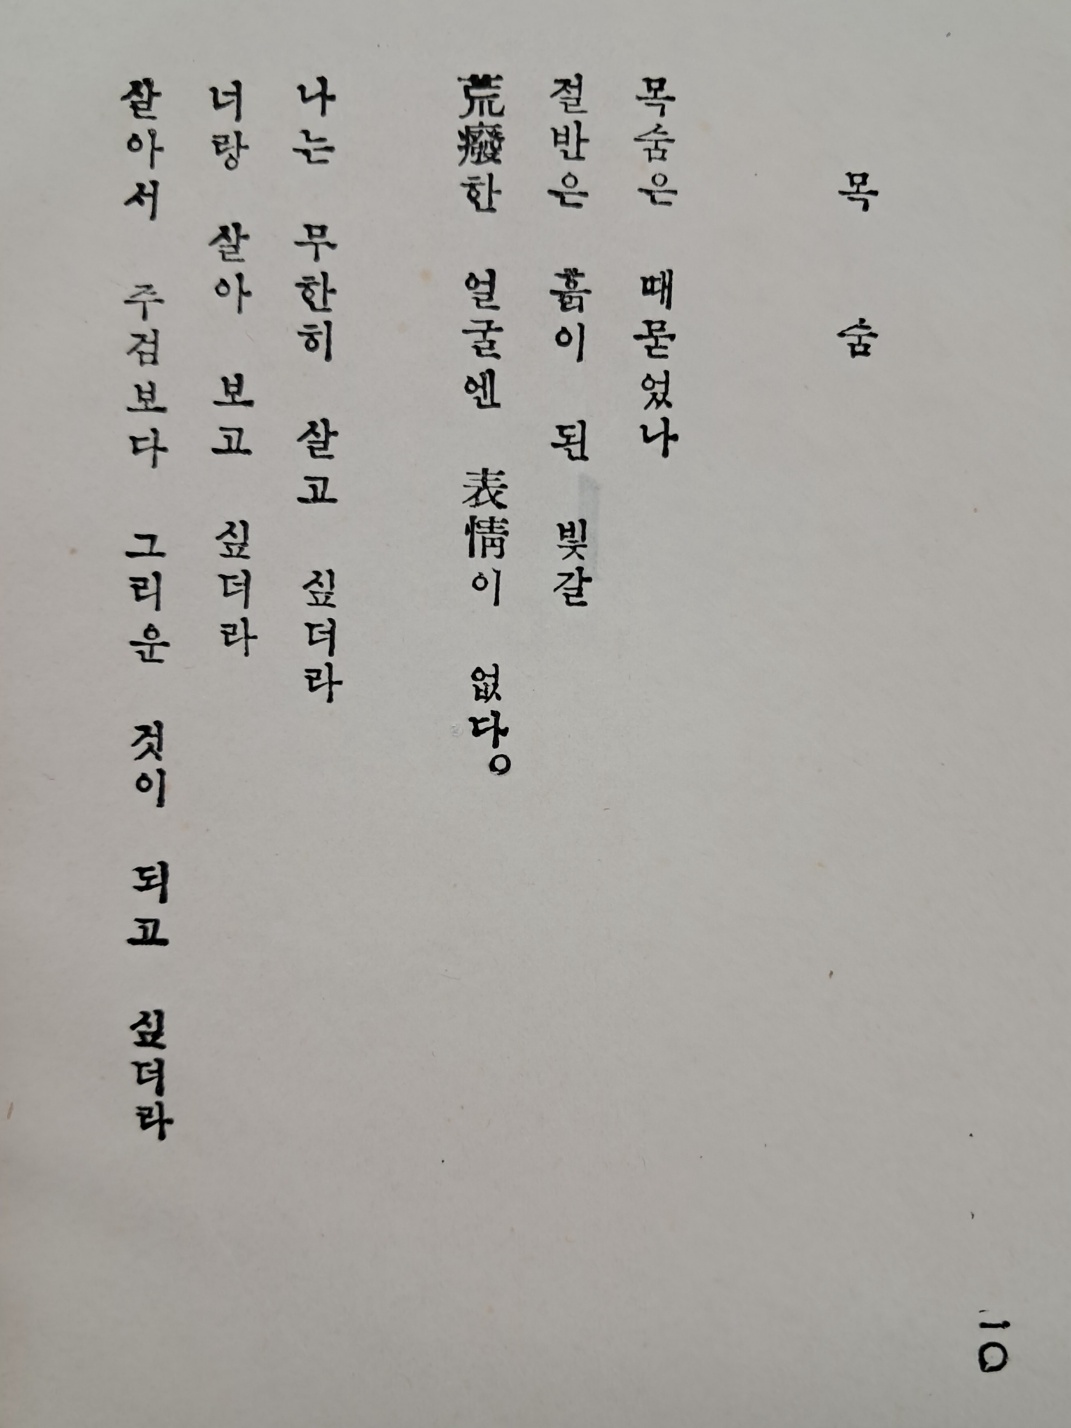 목숨
목숨은 때묻었나
절반은 흙이 된 빛갈
荒癈한 얼굴엔 表情이 없다。
나는 무한히 살고 싶더라
너랑 살아 보고 싶더라
살아서 주검보다 그리운 것이 되고 싶더라
一〇